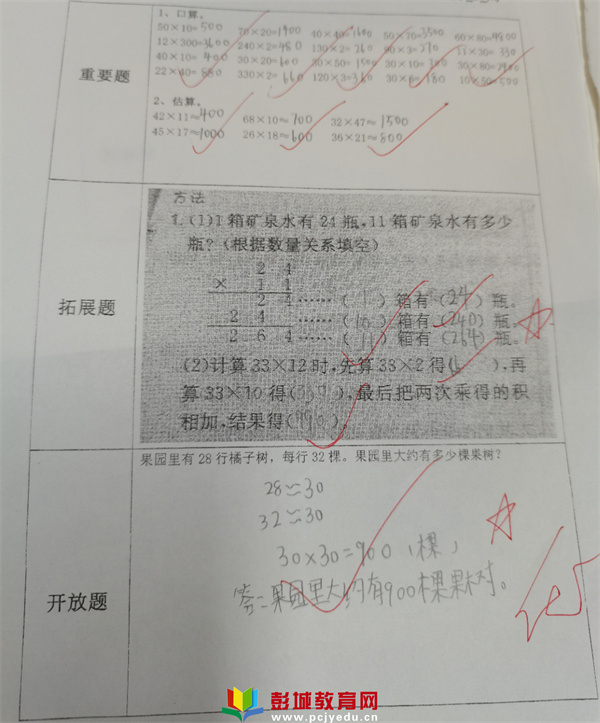 重要题
1、口算。
50×10=500 70×20=1400 40×40=1600 50×70=3500 60×80=4800
12×300=3600 240×2=480 130×2=260 90×3=270 11×30=330
40×10=400 30×20=600 30×50=1500 30×10=300 30×80=2400
22×40=880 330×2=660 120×3=360 30×6=180 10×50=500
2、估算。
42×11≈400 68×10≈700 32×47≈1500
45×17≈1000 26×18≈600 36×21≈800
拓展题
方法
1.(1)1箱矿泉水有24瓶,11箱矿泉水有多少
瓶?(根据数量关系填空)
2 4
× 1 1
2 4 ……(1)箱有(24)瓶。
2 4 ……(10)箱有(240)瓶。
2 6 4 ……(11)箱有(264)瓶。
(2)计算33×12时,先算33×2得( ),再
算33×10得( ),最后把两次乘得的积
相加,结果得( )。
开放题
果园里有28行橘子树,每行32棵。果园里大约有多少棵果树?
28≈30
32≈30
30×30=900(棵)
答:果园里大约有900棵果树。
彭城教育网
www.pcjyedu.cn